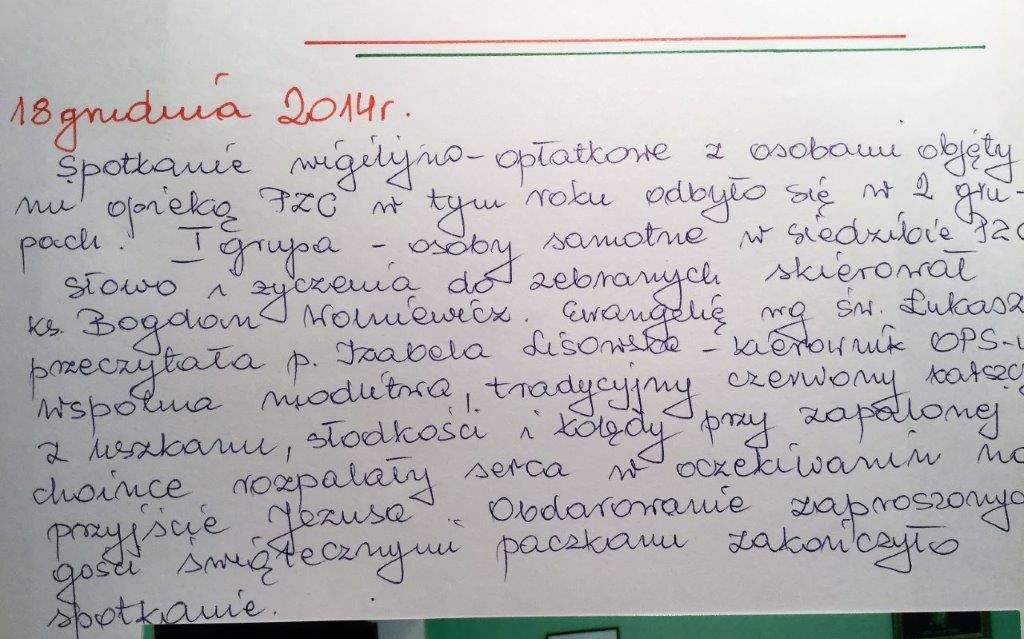 18 grudnia 2014r.
Spotkanie wigilijno-opłatkowe z osobami objęty
mi opieką PZC w tym roku odbyło się w 2 gru-
pach. I grupa - osoby samotne w siedzibie PZC
słowo i życzenia do zebranych skierował
ks. Bogdan Wolniewicz. Ewangelię wg św. Łukasz
przeczytała p. Izabela Lisowska - kierownik OPS-u
wspólna modlitwa, tradycyjny czerwony barszcz
z uszkami, słodkości i kolędy przy zapalonej
choince rozpalały serca w oczekiwaniu na
przyjście Jezusa. Obdarowanie zaproszonych
gości świątecznymi paczkami zakończyło
spotkanie.